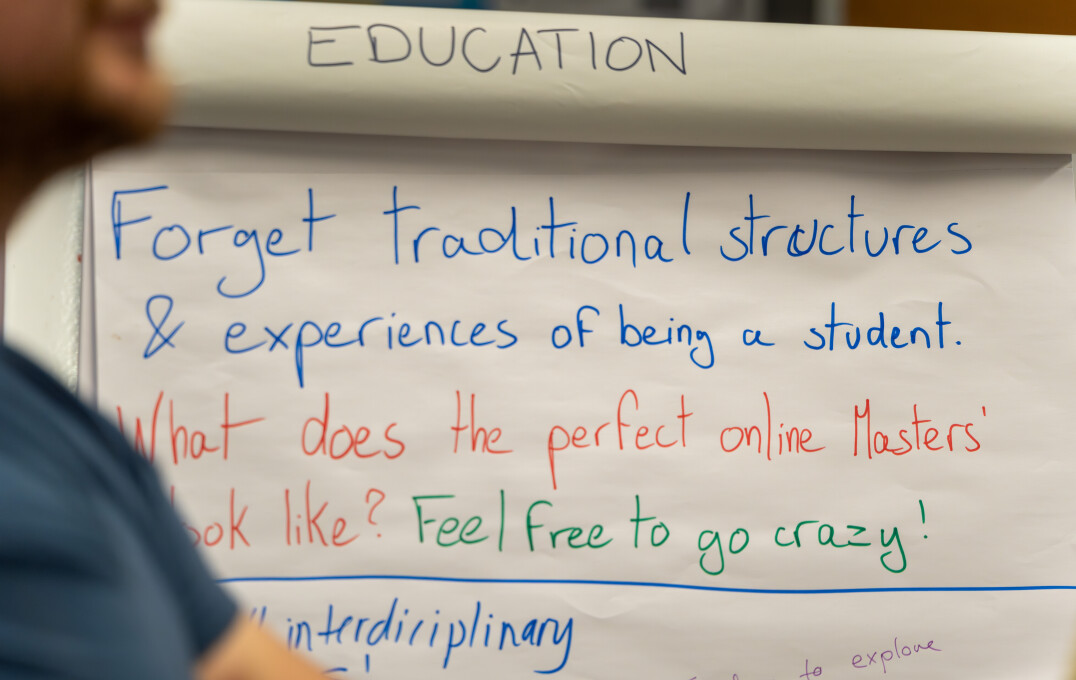 EDUCATION
Forget traditional structures
& experiences of being a student.
What does the perfect online Masters'
look like? Feel free to go crazy!
" interdiciplinary
to explore